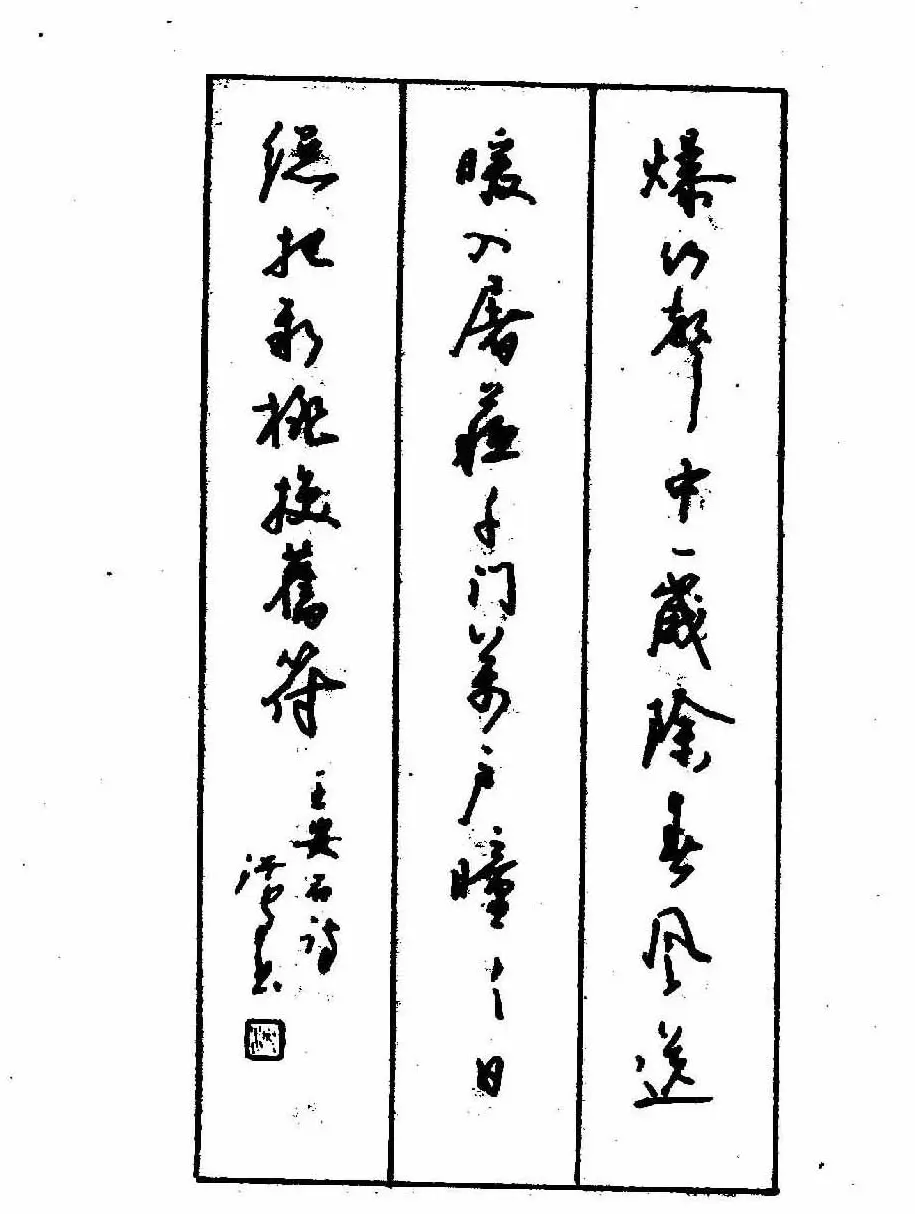 爆竹聲中一歲除春风送
暖入屠蘇千门萬户曈〻日
總把新桃換舊符
王安石诗